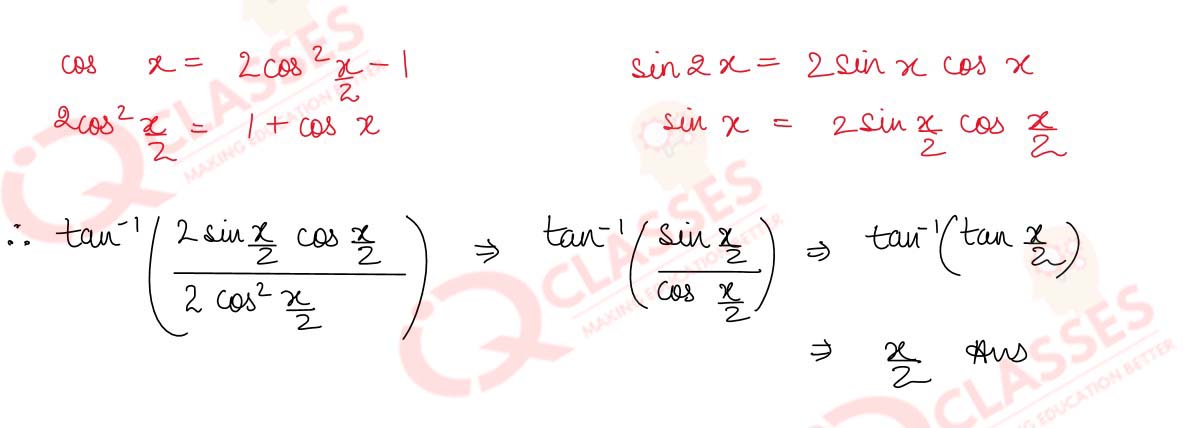 cos x = 2cos² x/2 - 1
2cos² x/2 = 1 + cos x
sin 2x = 2 sin x cos x
sin x = 2 sin x/2 cos x/2
∴ tan⁻¹(2 sin x/2 cos x/2 / 2 cos² x/2) ⇒ tan⁻¹(sin x/2 / cos x/2) ⇒ tan⁻¹(tan x/2)
⇒ x/2 Ans
CLASSES
MAKING EDUCATION BETTER
CLASSES
MAKING EDUCATION BETTER
CLASSES
MAKING EDUCATION BETTER